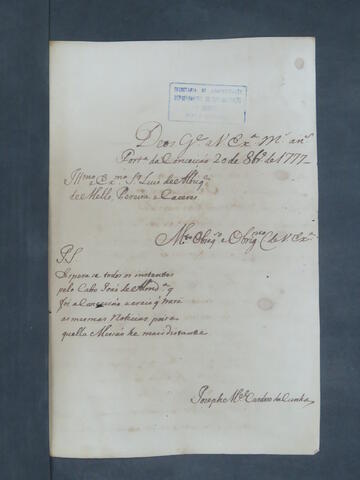 SECRETARIA DE ADMINISTRAÇÃO
Deos Gde a V Exa ms ans
Forte da Conceição 20 de 8bro de 1777
Illmo e Exmo Sr Luis de Albuqe
de Mello Pereira e Caceres
Mto Obrigdo e Obrigmo C de V Exa
PS
Espera se todos os instantes
pelo Cabo João de Almda q
foi a Conceição e creio q trará
as mesmas Noticias para
quella Missão he mais distante
Josephe Mel Cardoso da Cunha